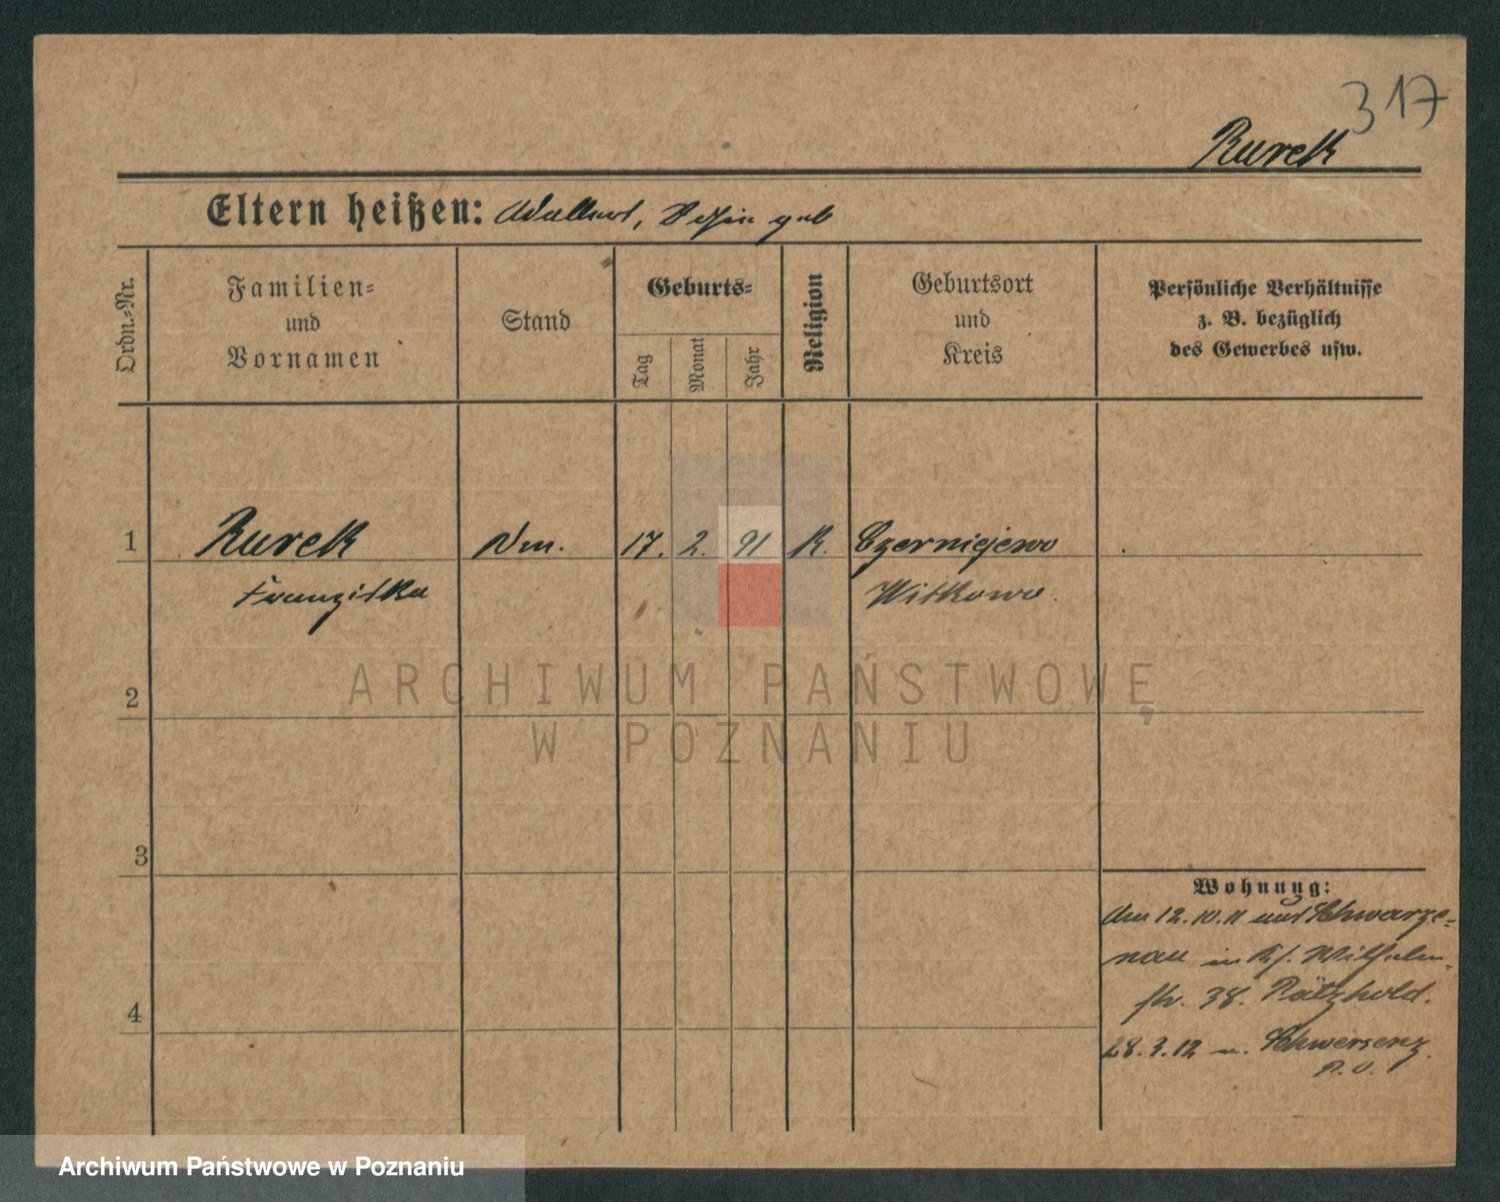 317
Rurek
Eltern heißen: Adalbert, geb
Ordn.-Nr.
Familien-
und
Vornamen
Stand
Geburts-
Tag
Monat
Jahr
Religion
Geburtsort
und
Kreis
Persönliche Verhältnisse
z. B. bezüglich
des Gewerbes usw.
1 Rurek Dm. 17. 2. 91 K. Czerniejewo
Franziska Witkowo.
2
ARCHIWUM PAŃSTWOWE
W POZNANIU
3
Wohnung:
den 12.10.11 aus Schwarze-
nau in Wilhelm-
str. 38. Pätzhold.
4
28.3.12 n. Schwersenz.
Archiwum Państwowe w Poznaniu